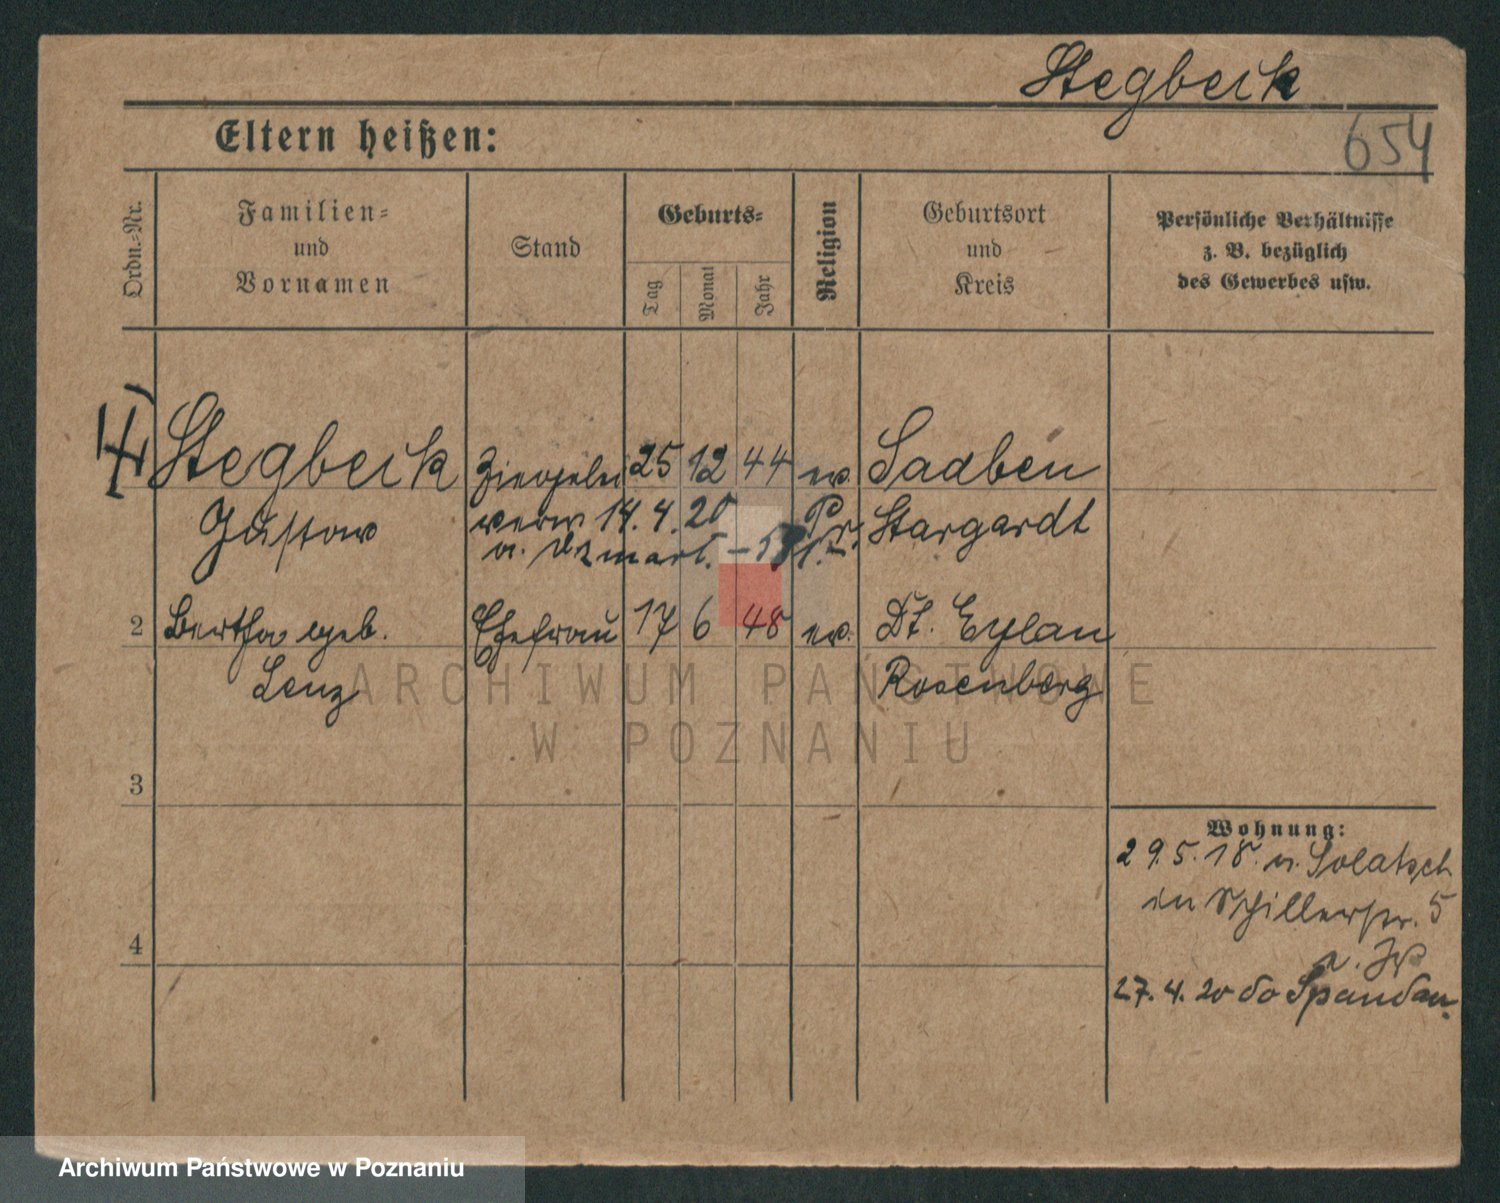 Stegbeck
654
Eltern heißen:
Ordn.-Nr.
Familien-
und
Vornamen
Stand
Geburts-
Tag
Monat
Jahr
Religion
Geburtsort
und
Kreis
Persönliche Verhältnisse
z. B. bezüglich
des Gewerbes usw.
Stegbeck Ziegelei 25 12 44 ev. Sadben
Gustav verw 14.4.20 Pr. Stargardt
2 Bertha geb. Ehefrau 17 6 48 ev. Dt. Eylau
Lenz Rosenberg
3
4
Wohnung:
29.5.18. v. Solatsch
in Schillerstr. 5
27.4.20 do Spandau.
ARCHIWUM PAŃSTWOWE
W POZNANIU
Archiwum Państwowe w Poznaniu